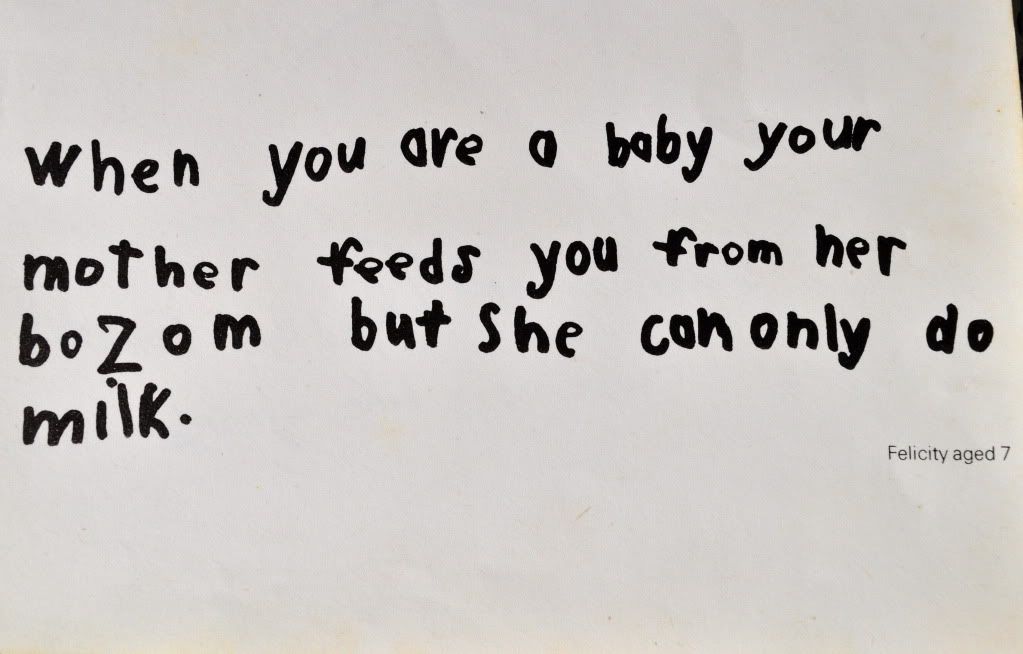 When you are a baby your
mother feeds you from her
bozom but she can only do
milk.
Felicity aged 7